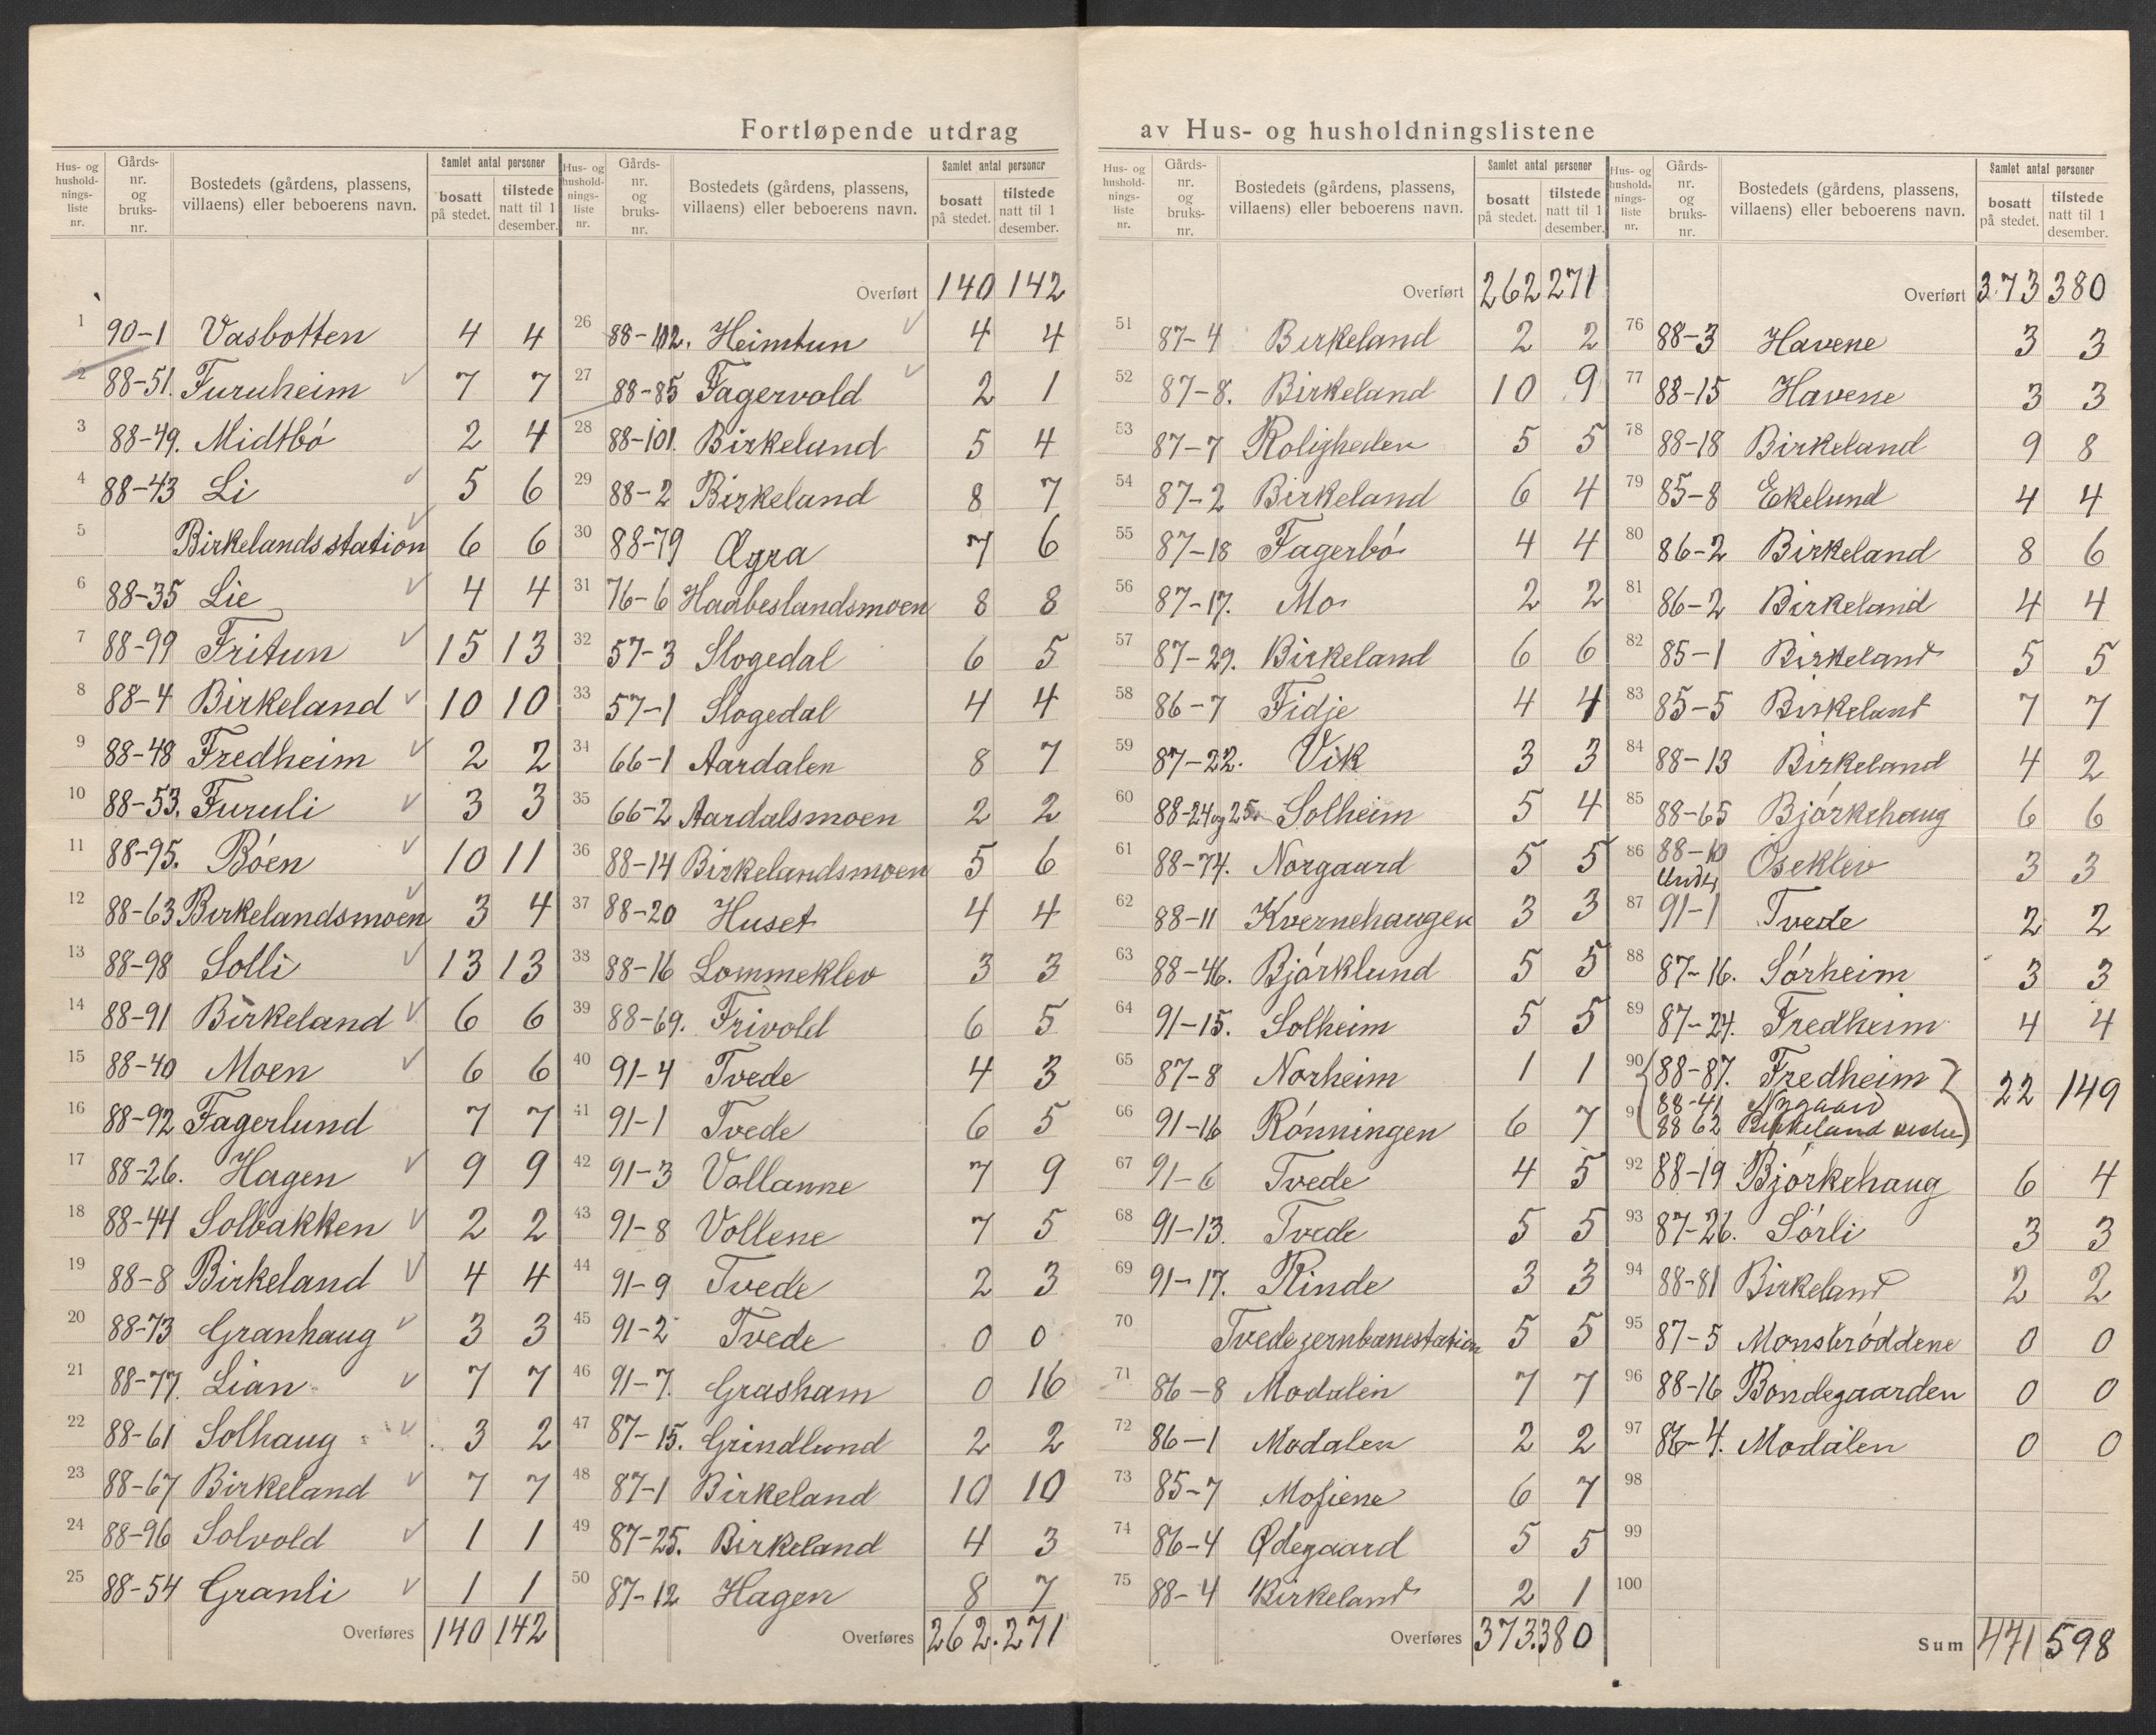 Fortløpende utdrag av Hus- og husholdningslistene
Hus- og hushold-nings-liste nr. | Gårds-nr. og bruks-nr. | Bostedets (gårdens, plassens, villaens) eller beboerens navn. | Samlet antal personer | bosatt på stedet. | tilstede natt til 1 desember.
1 90-1 Vasbotten 4 4
2 88-51. Furuheim 7 7
3 88-49. Midtbó 2 4
4 88-43 Li 5 6
5 Birkelandsstation 6 6
6 88-35 Lie 4 4
7 88-99 Fritun 15 13
8 88-4 Birkeland 10 10
9 88-48 Fredheim 2 2
10 88-53. Furuli 3 3
11 88-95. Bóen 10 11
12 88-63 Birkelandsmoen 3 4
13 88-98 Solli 13 13
14 88-91 Birkeland 6 6
15 88-40 Moen 6 6
16 88-92 Fagerlund 7 7
17 88-26. Hagen 9 9
18 88-44 Solbakken 2 2
19 88-8 Birkeland 4 4
20 88-73 Granhaug 3 3
21 88-77. Lian 7 7
22 88-61 Solhaug 3 2
23 88-67 Birkeland 7 7
24 88-96 Solvold 1 1
25 88-54 Granli 1 1
Overføres 140 142
Hus- og hushold-nings-liste nr. | Gårds-nr. og bruks-nr. | Bostedets (gårdens, plassens, villaens) eller beboerens navn. | Samlet antal personer | bosatt på stedet. | tilstede natt til 1 desember.
Overført 140 142
26 88-102. Heimtun 4 4
27 88-85 Fagervold 2 1
28 88-101. Birkeland 5 4
29 88-2 Birkeland 8 7
30 88-79 Øgra 7 6
31 76-6 Haabeslandsmoen 8 8
32 57-3 Slogedal 6 5
33 57-1 Slogedal 4 4
34 66-1 Aardalen 8 7
35 66-2 Aardalsmoen 2 2
36 88-14 Birkelandsmoen 5 6
37 88-20 Huset 4 4
38 88-16 Lommeklev 3 3
39 88-69. Frivold 6 5
40 91-4 Tvede 4 3
41 91-1 Tvede 6 5
42 91-3 Vollanne 7 9
43 91-8 Vollene 7 5
44 91-9 Tvede 2 3
45 91-2 Tvede 0 0
46 91-7. Grasham 0 16
47 87-15. Grindlund 2 2
48 87-1 Birkeland 10 10
49 87-25. Birkeland 4 3
50 87-12 Hagen 8 7
Overføres 262. 271
Hus- og hushold-nings-liste nr. | Gårds-nr. og bruks-nr. | Bostedets (gårdens, plassens, villaens) eller beboerens navn. | Samlet antal personer | bosatt på stedet. | tilstede natt til 1 desember.
Overført 262 271
51 87-4 Birkeland 2 2
52 87-8. Birkeland 10 9
53 87-7 Roligheden 5 5
54 87-2 Birkeland 6 4
55 87-18 Fagerbó 4 4
56 87-17. Mo 2 2
57 87-29. Birkeland 6 6
58 86-7 Fidje 4 4
59 87-22. Vik 3 3
60 88-24 og 25 Solheim 5 4
61 88-74. Norgaard 5 5
62 88-11 Kvernehaugen 3 3
63 88-46. Bjórklund 5 5
64 91-15. Solheim 5 5
65 87-8 Norheim 1 1
66 91-16 Rónningen 6 7
67 91-6 Tvede 4 5
68 91-13. Tvede 5 5
69 91-17. Rinde 3 3
70 Tvede jernbanestation 5 5
71 86-8 Modalen 7 7
72 86-1 Modalen 2 2
73 85-7 Mofiene 6 7
74 86-4 Ødegaard 5 5
75 88-4 Birkeland 2 1
Overføres 373. 380
Hus- og hushold-nings-liste nr. | Gårds-nr. og bruks-nr. | Bostedets (gårdens, plassens, villaens) eller beboerens navn. | Samlet antal personer | bosatt på stedet. | tilstede natt til 1 desember.
Overført 373 380
76 88-3 Havene 3 3
77 88-15 Havene 3 3
78 88-18 Birkeland 9 8
79 85-8 Ekelund 4 4
80 86-2 Birkeland 8 6
81 86-2 Birkeland 4 4
82 85-1 Birkeland 5 5
83 85-5 Birkeland 7 7
84 88-13 Birkeland 4 2
85 88-65 Bjórkehaug 6 6
86 88-10 Óseklev 3 3
Und
87 91-1 Tvede 2 2
88 87-16. Sórheim 3 3
89 87-24. Fredheim 4 4
90 88-87. Fredheim 22 149
88-41 Nygaard
91 88 62 Birkeland
92 88-19 Bjórkehaug 6 4
93 87-26. Sórli 3 3
94 88-81 Birkeland 2 2
95 87-5 Monsbróddene 0 0
96 88-16 Bondegaarden 0 0
97 86-4. Modalen 0 0
98
99
100
Sum 471 598